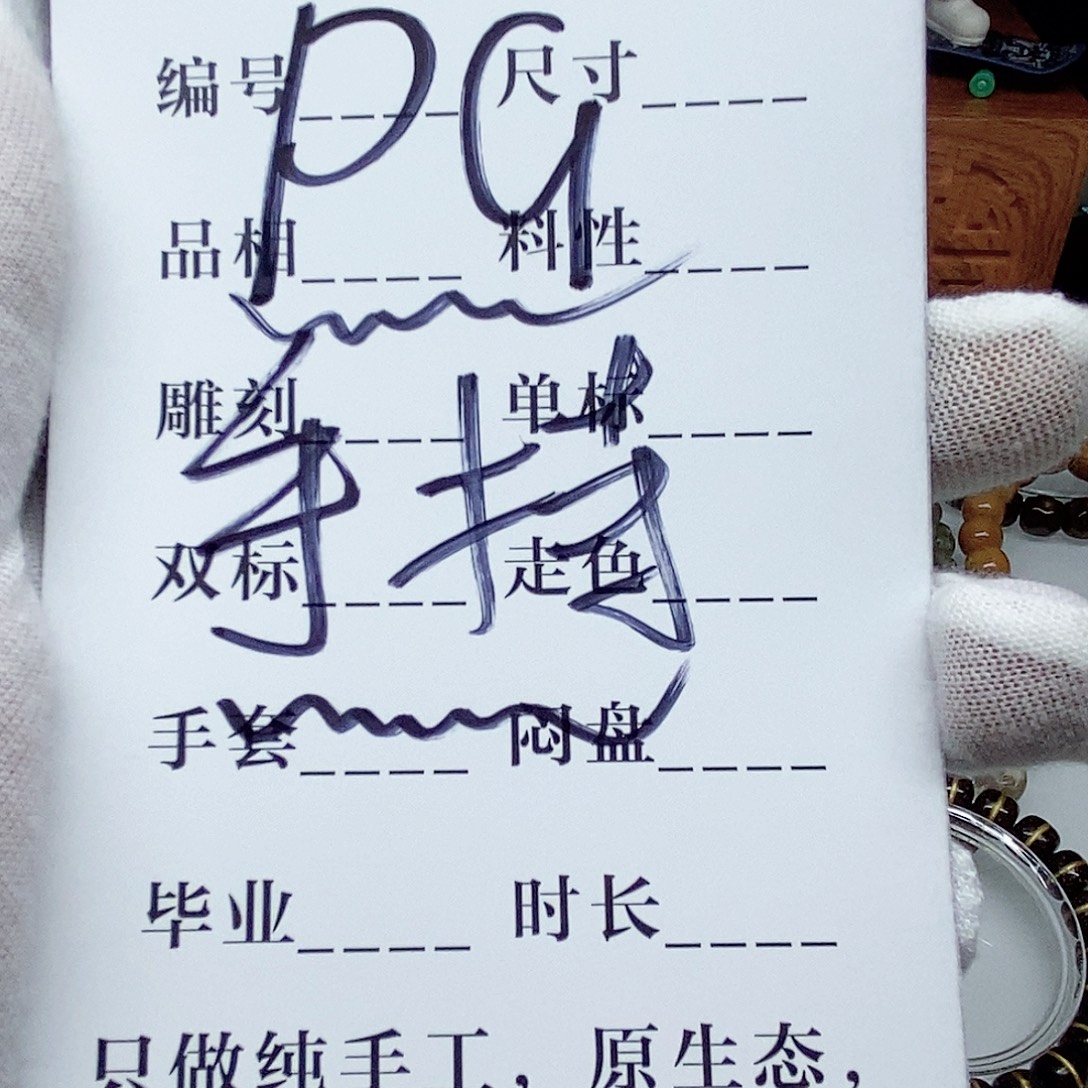 编号____ 尺寸____
品相____ 料性____
雕刻____ 单标____
双标____ 走色____
手套____ 闷盘____
毕业____ 时长____
只做纯手工，原生态，